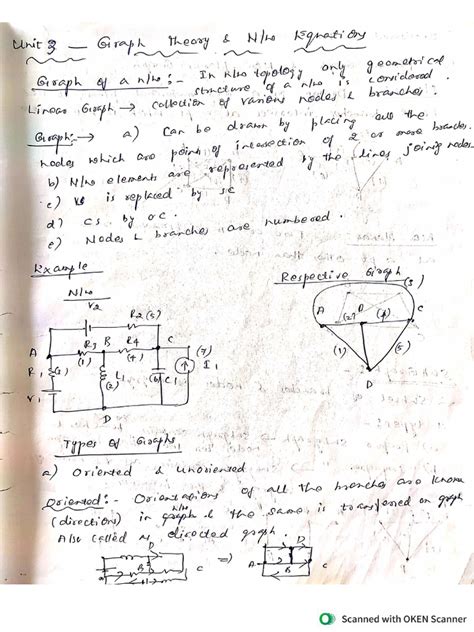 Unit 3 — Graph Theory & N/w Equations
Graph of a n/w :- In N/w topology only geometrical
structure of a n/w is considered.
Linear Graph → collection of various nodes & branches.
Graph :→ a) Can be drawn by placing all the
nodes which are points of intersection of 2 or more branches.
b) N/w elements are represented by the lines joining nodes
c) VS is replaced by SC
d) CS by OC.
e) Nodes & branches are numbered.
Example
N/w
Respective Graph
V2
R2 (5)
(3)
A R3 B R4 C
(1) (4) (7)
R1 L1 (2) (6) C1 I1
V1
D
A (2) B (4) C
(1) (5)
D
Types of Graphs
a) Oriented & Unoriented
Oriented :- Orientations of all the branches are known
(directions) in graph & the same is transferred on graph
n/w
Also called as directed graph.
D D
A B C ⇒ A B C
Scanned with OKEN Scanner